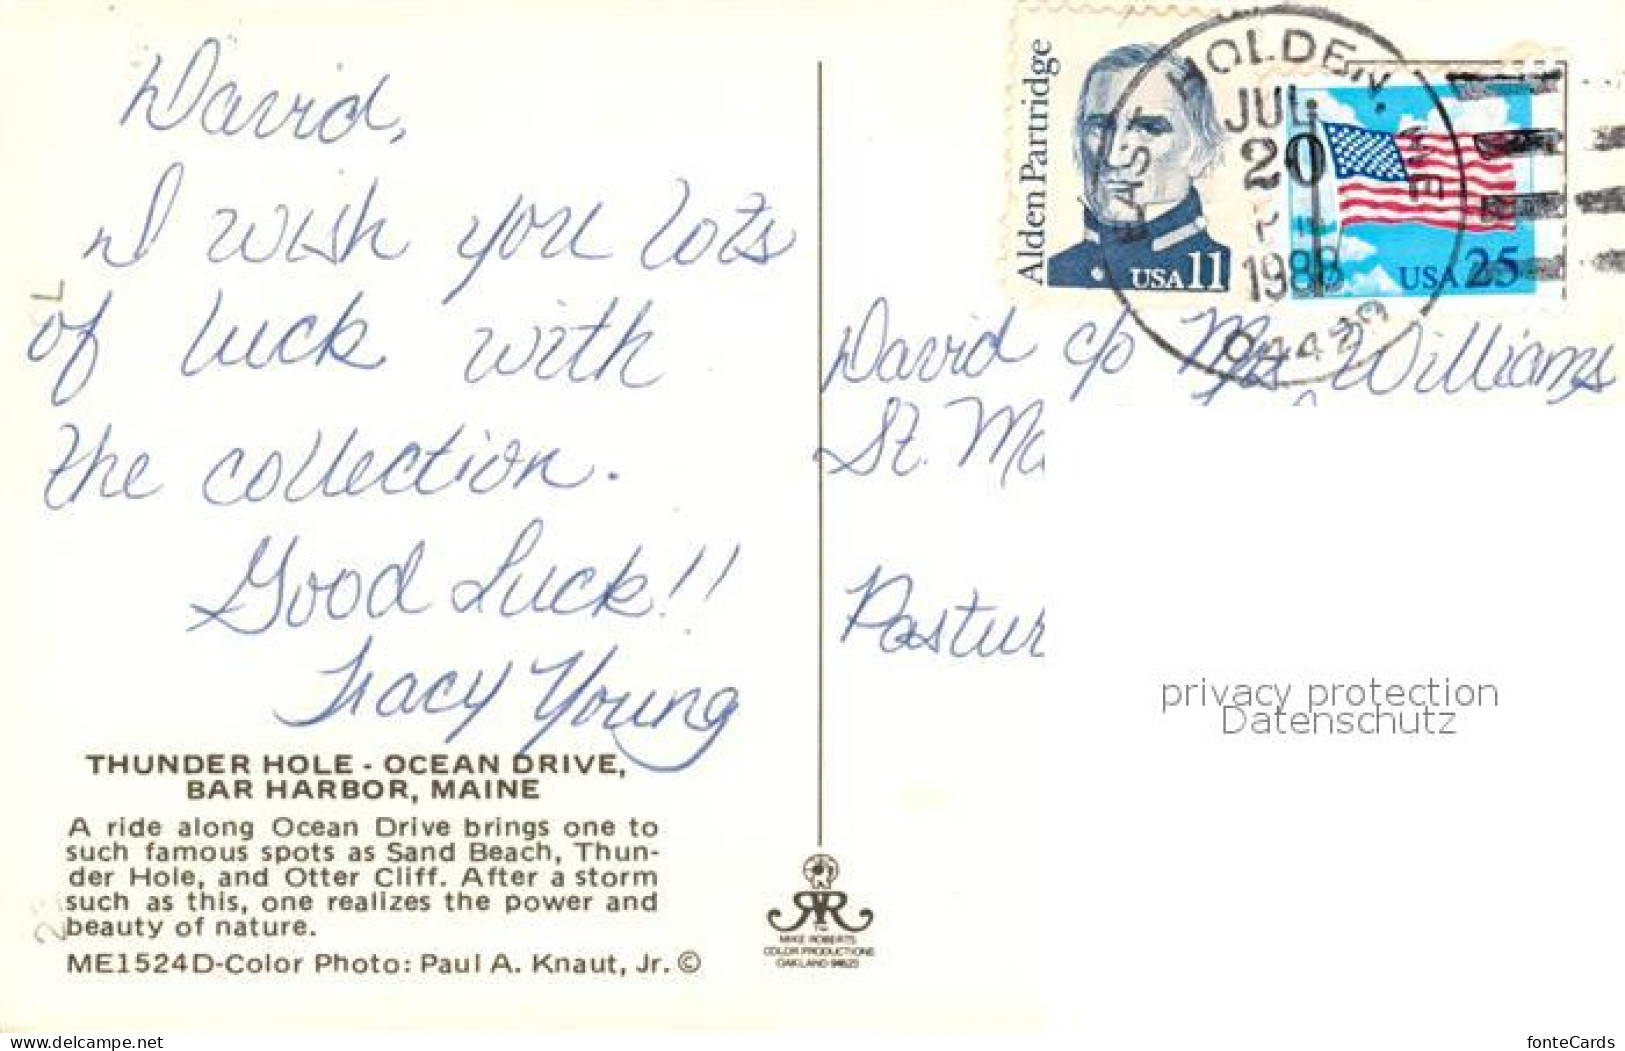 David,
I wish you lots
of luck with
the collection.
Good Luck!!
Tracy Young
THUNDER HOLE - OCEAN DRIVE,
BAR HARBOR, MAINE
A ride along Ocean Drive brings one to
such famous spots as Sand Beach, Thun-
der Hole, and Otter Cliff. After a storm
such as this, one realizes the power and
beauty of nature.
ME1524D-Color Photo: Paul A. Knaut, Jr. ©
MIKE ROBERTS
COLOR PRODUCTIONS
OAKLAND 94623
Alden Partridge
USA 11
EAST HOLDEN, ME
JUL
20
1988
04429
USA 25
David c/o Mrs Williams
St.
privacy protection
Datenschutz
www.delcampe.net
fonteCards